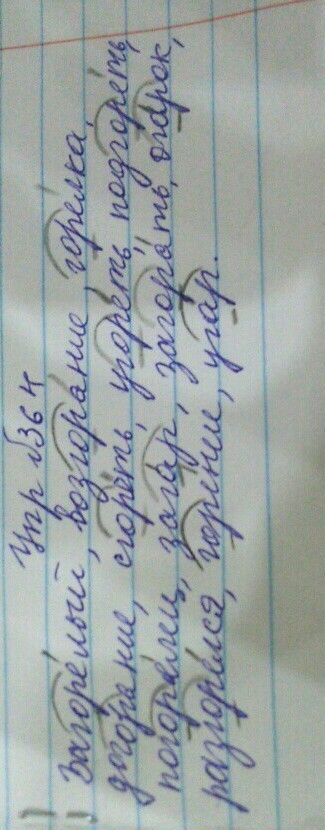 Упр 136 н
Загорелый, возгорание, горелка,
догорание, сгореть, угореть, подгореть,
погорелец, загар, загорать, огарок,
разгорелся, горение, угар.